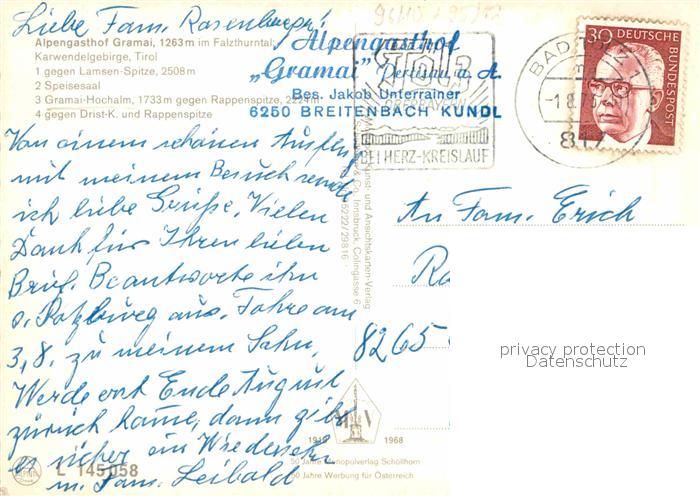 Liebe Fam. Rosenberger!
Alpengasthof Gramai, 1263 m im Falzthurntal,
Karwendelgebirge, Tirol
1 gegen Lamsen-Spitze, 2508 m
2 Speisesaal
3 Gramai-Hochalm, 1733 m gegen Rappenspitze, 2224 m
4 gegen Drist-K. und Rappenspitze
Alpengasthof
„Gramai" Pertisau a. A.
Bes. Jakob Unterrainer
6250 BREITENBACH KUNDL
BAD TÖLZ
OBERBAYERN
BEI HERZ-KREISLAUF
BAD TÖLZ 1
817
30 DEUTSCHE BUNDESPOST
Von einem schönen Ausflug
mit meinem Besuch sende
ich liebe Grüße. Vielen
Dank für Ihren lieben
Brief. Beantworte ihn
v. Salzburg aus. Fahre am
3.8. zu meinem Sohn.
Werde erst Ende August
zurück kommen, dann gibt
es sicher ein Wiedersehn
m. Fam. Leibald
Kunst- und Ansichtskarten-Verlag
& Co, Innsbruck, Colingasse 6
An Fam. Erich
8265
M V
1918 1968
50 Jahre Monopolverlag Schöllhorn
50 Jahre Werbung für Österreich
L 145058
privacy protection
Datenschutz